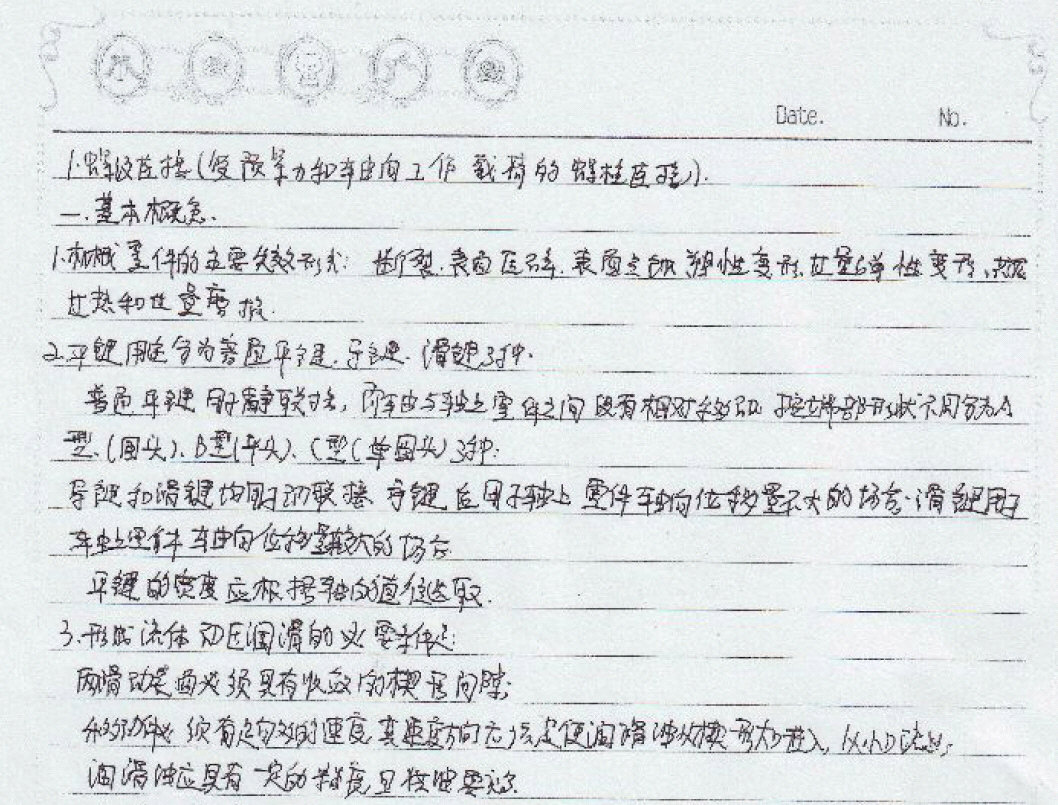 Date. No.
1.螺纹连接(受预紧力和轴向工作载荷的螺栓连接).
一.基本概念.
1.机械零件的主要失效形式: 断裂.表面压碎.表面点蚀.塑性变形.过量弹性变形.共振
过热和过量磨损.
2.平键用途分为普通平键.导键.滑键3种.
普通平键用于静联接,即轴与轴上零件之间没有相对移动 按端部形状不同分为A
型.(圆头).B型(平头).C型(单圆头)3种.
导键和滑键均用于动联接 导键应用于轴上零件轴向位移量不大的场合.滑键用于
轴上零件轴向位移量较大的场合
平键的宽度应根据轴的直径选取.
3.形成流体动压润滑的必要条件是:
两滑动表面必须具有收敛的楔形间隙;
必须有足够的速度 其速度方向应使润滑油从楔形大口进入,从小口流出;
润滑油应具有一定的粘度,且供油要充分.